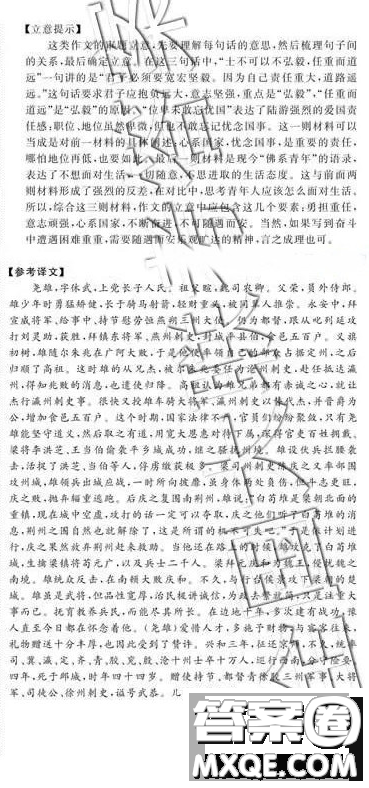 【立意提示】
这类作文的审题立意,先要理解每句话的意思,然后梳理句子间
的关系,最后确定立意。在这三句话中,“士不可以不弘毅,任重而道
远”一句讲的是“君子必须要宽宏坚毅。因为自己责任重大,道路遥
远。”这句话要求君子应抱负远大,意志坚强,重点是“弘毅”,“任重而
道远”是“弘毅”的原因。“位卑未敢忘忧国”表达了陆游强烈的爱国责
任感:职位、地位虽然卑微,但也不敢忘记忧念国事。这一则材料可以
当成是对前一材料的具体阐述:心系国家,忧念国事,是重要的责任,
哪怕地位再低,也要如此。最后一则材料是现今“佛系青年”的语录,
表达了不想面对生活,一切随意,不思进取的生活态度。这与前面两
则材料形成了强烈的反差,在对比中,思考青年人应该怎么面对生活。
所以,综合这三则材料,作文的立意中应包含这几个要素:勇担重任,
意志顽强,心系国家,不断奋进,不可随遇而安。当然,如果写到奋斗
中遭遇困难重重,需要随遇而安乐观旷达的精神,言之成理也可。
【参考译文】
尧雄,字休武,上党长子人氏。祖父暄,魏司农卿。父荣,员外侍郎。
雄少年时勇猛矫健,长于骑马射箭,轻财重义,被同辈人推崇。永安中,拜
宣威将军、给事中、持节慰劳恒燕朔三州大使。仍为都督,跟从叱列延攻
打刘灵助,获胜,拜镇东将军、燕州刺史,封城平县伯,食邑五百户。义旗
初树,雄随尔朱兆在广阿大败,于是他便率领自己的部众占据定州,之后
归顺了高祖。这时雄的从兄杰,被尔朱兆委任为沧州刺史,赴任抵达瀛
州,得知兆败的消息,也遣使归降。高祖认为雄兄弟都有赤诚之心,就让
杰行瀛州刺史事。很快又授雄车骑大将军、瀛州刺史以替代杰,并晋爵为
公,增加食邑五百户。这个时期,国家法律不严,官员们纷纷聚敛,只有尧
雄能坚守道义,然后取之有道,用宽大恩惠对待下属,深得官吏百姓拥戴。
梁将李洪芝、王当伯偷袭平乡城成功,继之骚扰州境。雄设伏兵拦腰袭
击,活捉了洪芝、当伯等人,俘虏缴获极多。梁司州刺史陈庆之又率部围
攻州城,雄领兵出城应战,一时所向披靡,虽身体两处负伤,但斗志更旺,
庆之败,抛弃辎重逃跑。后庆之复围南荆州,雄说:“白苟堆是梁朝北面的
重镇,现在城中空虚,攻打的话一定可以夺取,庆之他们听了白苟堆的消
息,荆州之围自然也就解除了,这是所谓的机不可失吧。”于是依计划进
行,庆之果然放弃荆州赶来救助。当他还在路上的时候,雄攻克了白苟堆
城,生擒梁镇将苟元广,以及兵士二千人。梁拜元庆和为魏王,侵扰魏之
南境。雄统众反击,在南顿大败庆和。不久,与行台侯景攻下梁朝的楚
城。雄虽是武将,但品性宽厚,治民能讲诚信,为政去繁就简,只是注重大
事而已。抚育教养兵民,而能尽其所长。在边地十年,多次建有战功,豫
人直至今日都在怀念着他。（尧雄）爱惜人才,多施于财物,与宾客往来,
礼物赠送十分丰厚,也因此受到了赞许。兴和三年,征还京师,不久,统率
司、冀、瀛、定、齐、青、胶、兖、殷、沧十州士卒十万人,巡行西南,分守险要。
四年,死于邺城,时年四十四岁。赠使持节、都督青徐胶三州军事、大将
军、司徒公、徐州刺史,谥号武恭。儿
答案圈
MXQE.COM